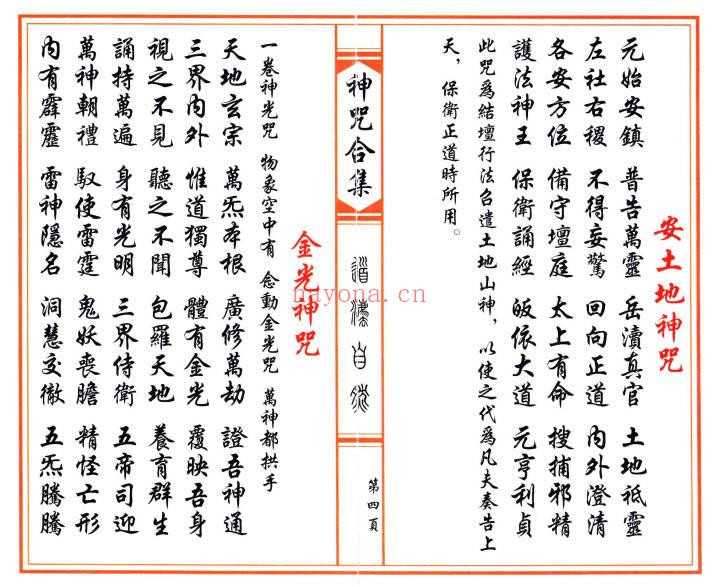 安土地神咒
元始安鎮 普告萬靈 岳瀆真官 土地祇靈
左社右稷 不得妄驚 回向正道 內外澄清
各安方位 備守壇庭 太上有命 搜捕邪精
護法神王 保衛誦經 皈依大道 元亨利貞
此咒爲結壇行法召遣土地山神，以使之代爲凡夫奏告上
天，保衛正道時所用。
神咒合集
道法自然
第四頁
金光神咒
一卷神光咒 物象空中有 念動金光咒 萬神都拱手
天地玄宗 萬炁本根 廣修萬劫 證吾神通
三界內外 惟道獨尊 體有金光 覆映吾身
視之不見 聽之不聞 包羅天地 養育群生
誦持萬遍 身有光明 三界侍衛 五帝司迎
萬神朝禮 馭使雷霆 鬼妖喪膽 精怪亡形
內有霹靂 雷神隱名 洞慧交徹 五炁騰騰
nayona.cn